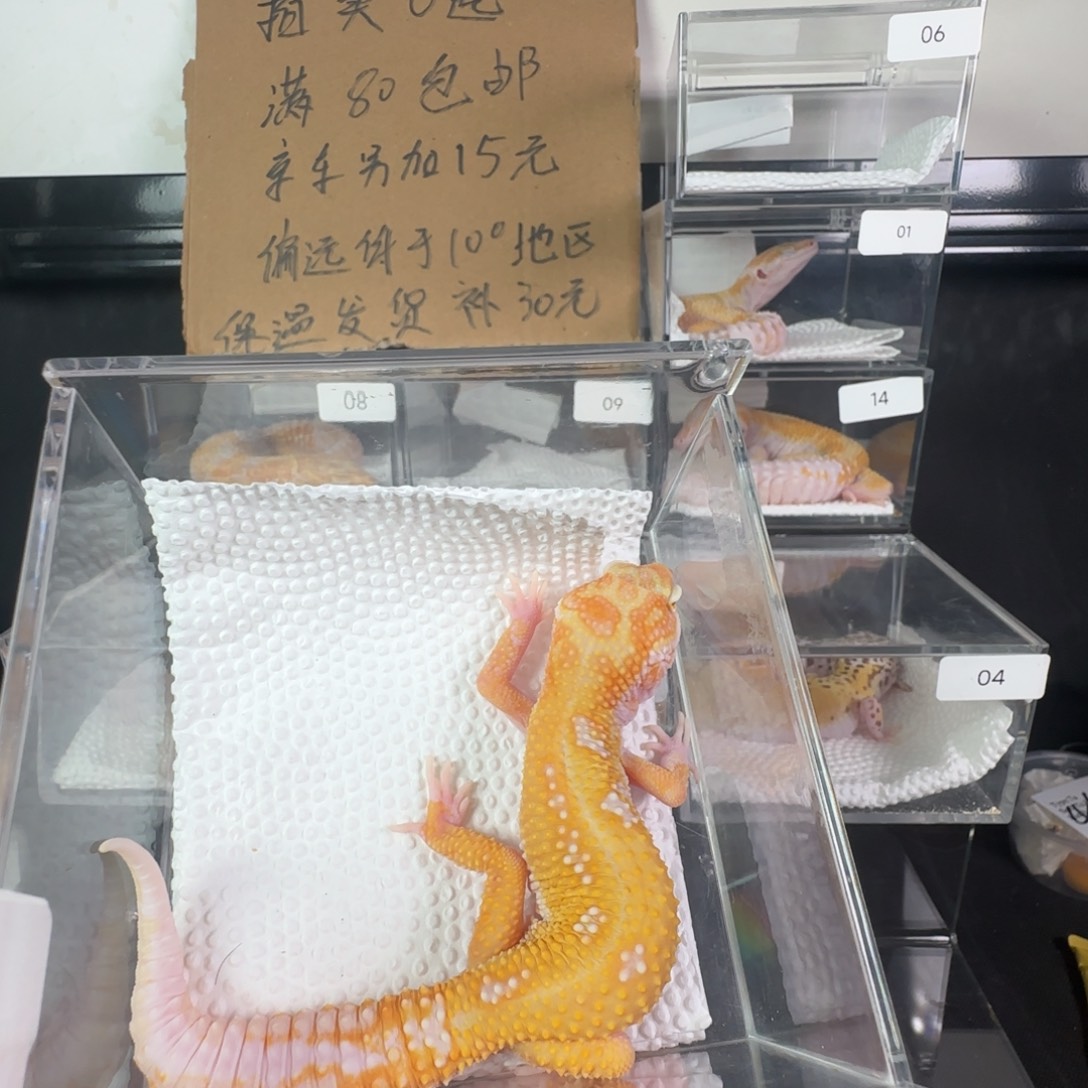 满 80 包邮
京车另加15元
偏远件于10°地区
保温发货 补 30元
06
01
14
08
09
04